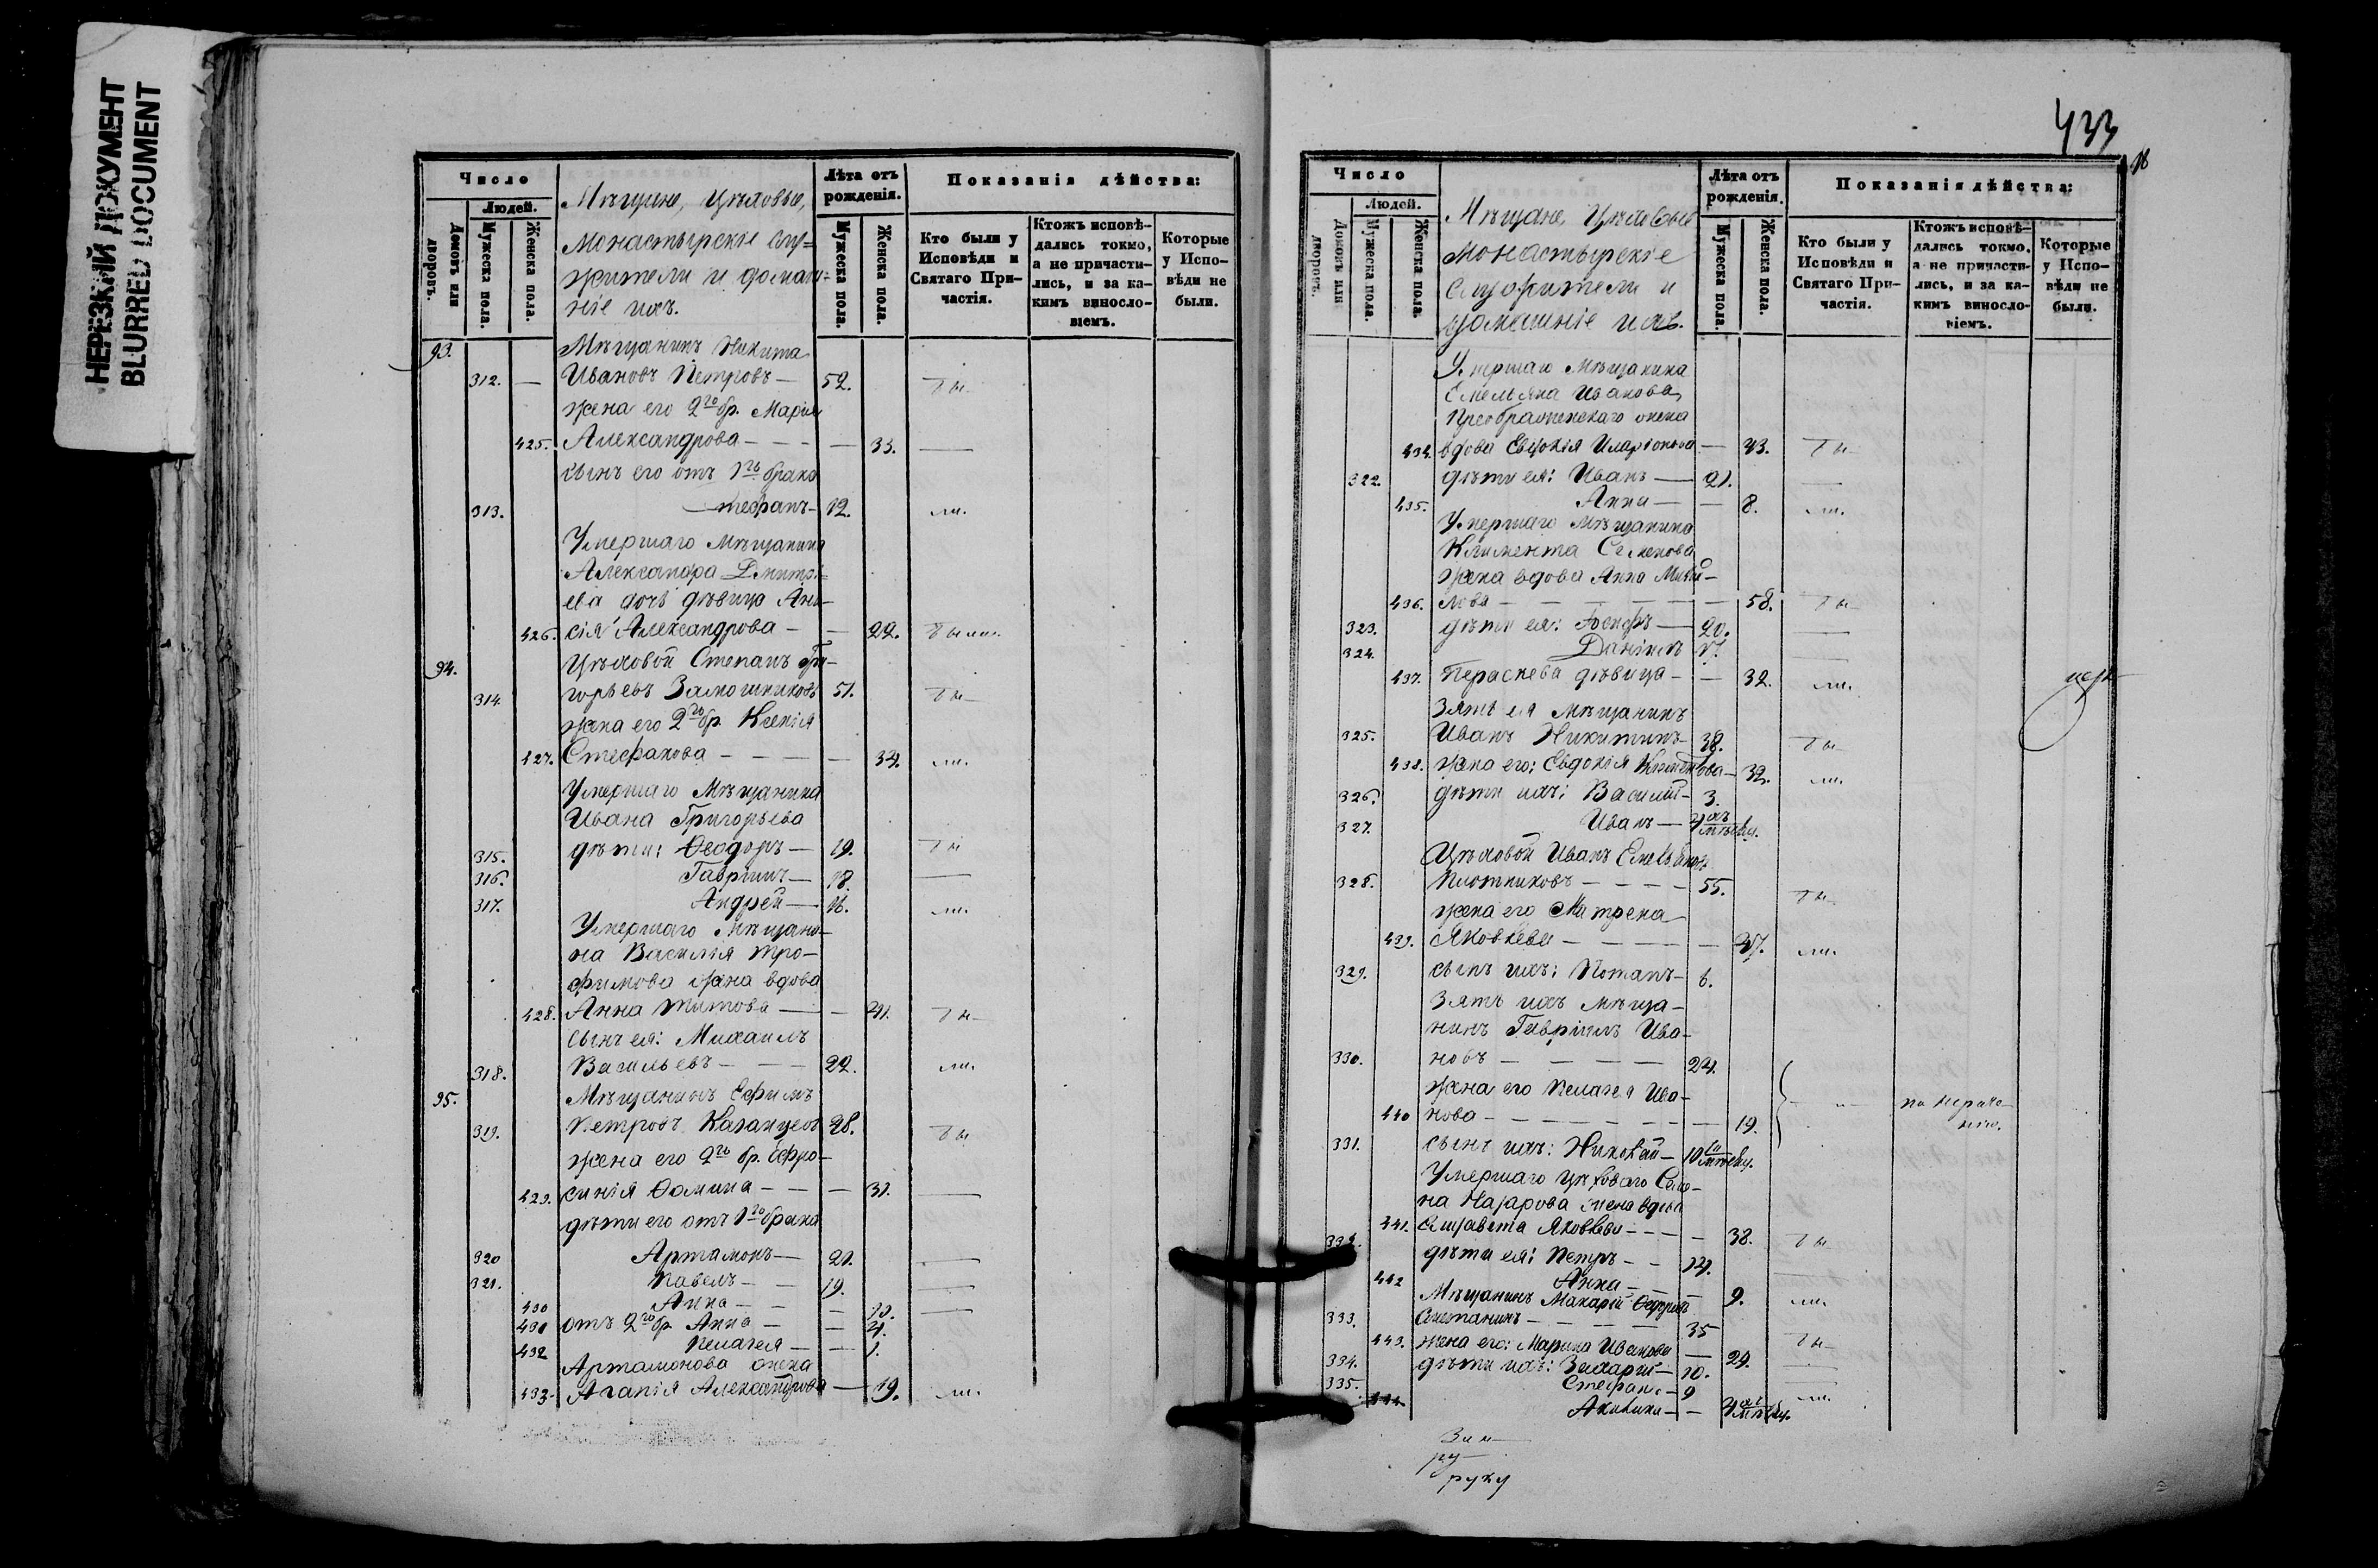 НЕРЕЗКИЙ ДОКУМЕНТ
BLURRED DOCUMENT
Число
Людей.
Домовъ или дворовъ.
Мужеска пола.
Женска пола.
Мѣщане, Цѣховые,
Монастырскіе слу=
жители и домаш=
ніе ихъ.
Лѣта отъ рожденія.
Мужеска пола.
Женска пола.
Показанія дѣйства:
Кто были у Исповѣди и Святаго При-частія.
Ктожъ исповѣ-дались токмо, а не причасти-лись, и за ка-кимъ винослo-віемъ.
Которые у Испо-вѣди не были.
93. Мѣщанинъ Никита
312. — Ивановъ Петровъ — 52. бы
жена его 2го бр. Марія
425. Александрова — — — — 33. —
сынъ его отъ 1го брака
313. Стефанъ — 12. ли.
Умершаго Мѣщанина
Александра Дмитрі=
ева дочь дѣвица Ани-
426. сія Александрова — — 22. были.
94. Цѣховой Степанъ Гри-
314. горьевъ Замошниковъ 51. бы
жена его 2го бр. Ксенія
427. Стефанова — — — — 34. ли.
Умершаго Мѣщанина
Ивана Григорьева
315. дѣти: Ѳеодоръ — 19. бы
316. Гавріилъ — 18. —
317. Андрей — 16. ли.
Умершаго Мѣщани-
на Василія Тро-
фимова жена вдова
428. Анна Титова — — 41. бы
сынъ ея: Михаилъ
318. Васильевъ — — — 22. ли.
95. Мѣщанинъ Ефимъ
319. Петровъ Казанцевъ 28. бы
жена его 2го бр. Ефро-
429. синія Ѳомина — — — 31. —
дѣти его отъ 1го брака
320 Артамонъ — 21. —
321. Павелъ — — 19. —
430 Анна — — — 10. —
431 отъ 2го бр. Анна — — 4.
432 Пелагея — — 1.
Артамонова жена
433. Агапія Александрова — 19. ли.
433
Число
Людей.
Домовъ или дворовъ.
Мужеска пола.
Женска пола.
Мѣщане, Цѣховые
Монастырскіе
служители и
домашніе ихъ.
Лѣта отъ рожденія.
Мужеска пола.
Женска пола.
Показанія дѣйства:
Кто были у Исповѣди и Святаго При-частія.
Ктожъ исповѣ-дались токмо, а не причасти-лись, и за ка-кимъ винослo-віемъ.
Которые у Испо-вѣди не были.
Умершаго Мѣщанина
Емельяна Иванова
Преображенскаго жена
434. вдова Евдокія Иларіонова — 43. бы
322. дѣти ея: Иванъ — 21. —
435. Анна — — 8. ли.
Умершаго Мѣщанина
Климента Семенова
жена вдова Анна Михай-
436. лова — — — — — — 58. бы
323. дѣти ея: Іосифъ — 20. —
324. Даніилъ 17. —
437. Параскева дѣвица — — 32. ли.
Зять ея Мѣщанинъ
325. Иванъ Никитинъ — 38. бы
438. жена его: Евдокія Климентова — 32. ли.
326. дѣти ихъ: Василій — 3.
327. Иванъ — 4хъ мѣсяц.
Цѣховой Иванъ Емельяновъ
328. Плотниковъ — — — — 55. бы
жена его Матрена
439. Яковлева — — — — — 47. ли.
329. сынъ ихъ: Потапъ — 6.
Зять ихъ Мѣща-
нинъ Гавріилъ Ива-
330. новъ — — — — 24.
жена его Пелагея Ива-
440 нова — — — — — — 19. по нераче-
нію.
331. сынъ ихъ: Николай — 10ти мѣсяц.
Умершаго Цѣховаго Семе-
на Назарова жена вдова
441. Елисавета Яковлева — — — — 38. бы
332. дѣти ея: Петръ — — 14. —
442 Анна — — — 9. ли.
Мѣщанинъ Макарій Ѳедоровъ
333. Сметанинъ — — — — 35 бы
443. жена его: Марина Иванова — 29. —
334. дѣти ихъ: Захарій — 10. —
335. Стефанъ — 9 ли.
444 Акилина — — 4хъ мѣсяц.
руку